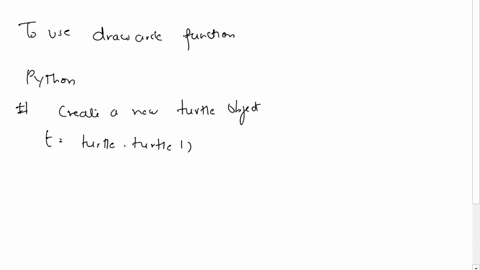 To use drawcircle function
Python
# Create a new turtle object
t = turtle.turtle()